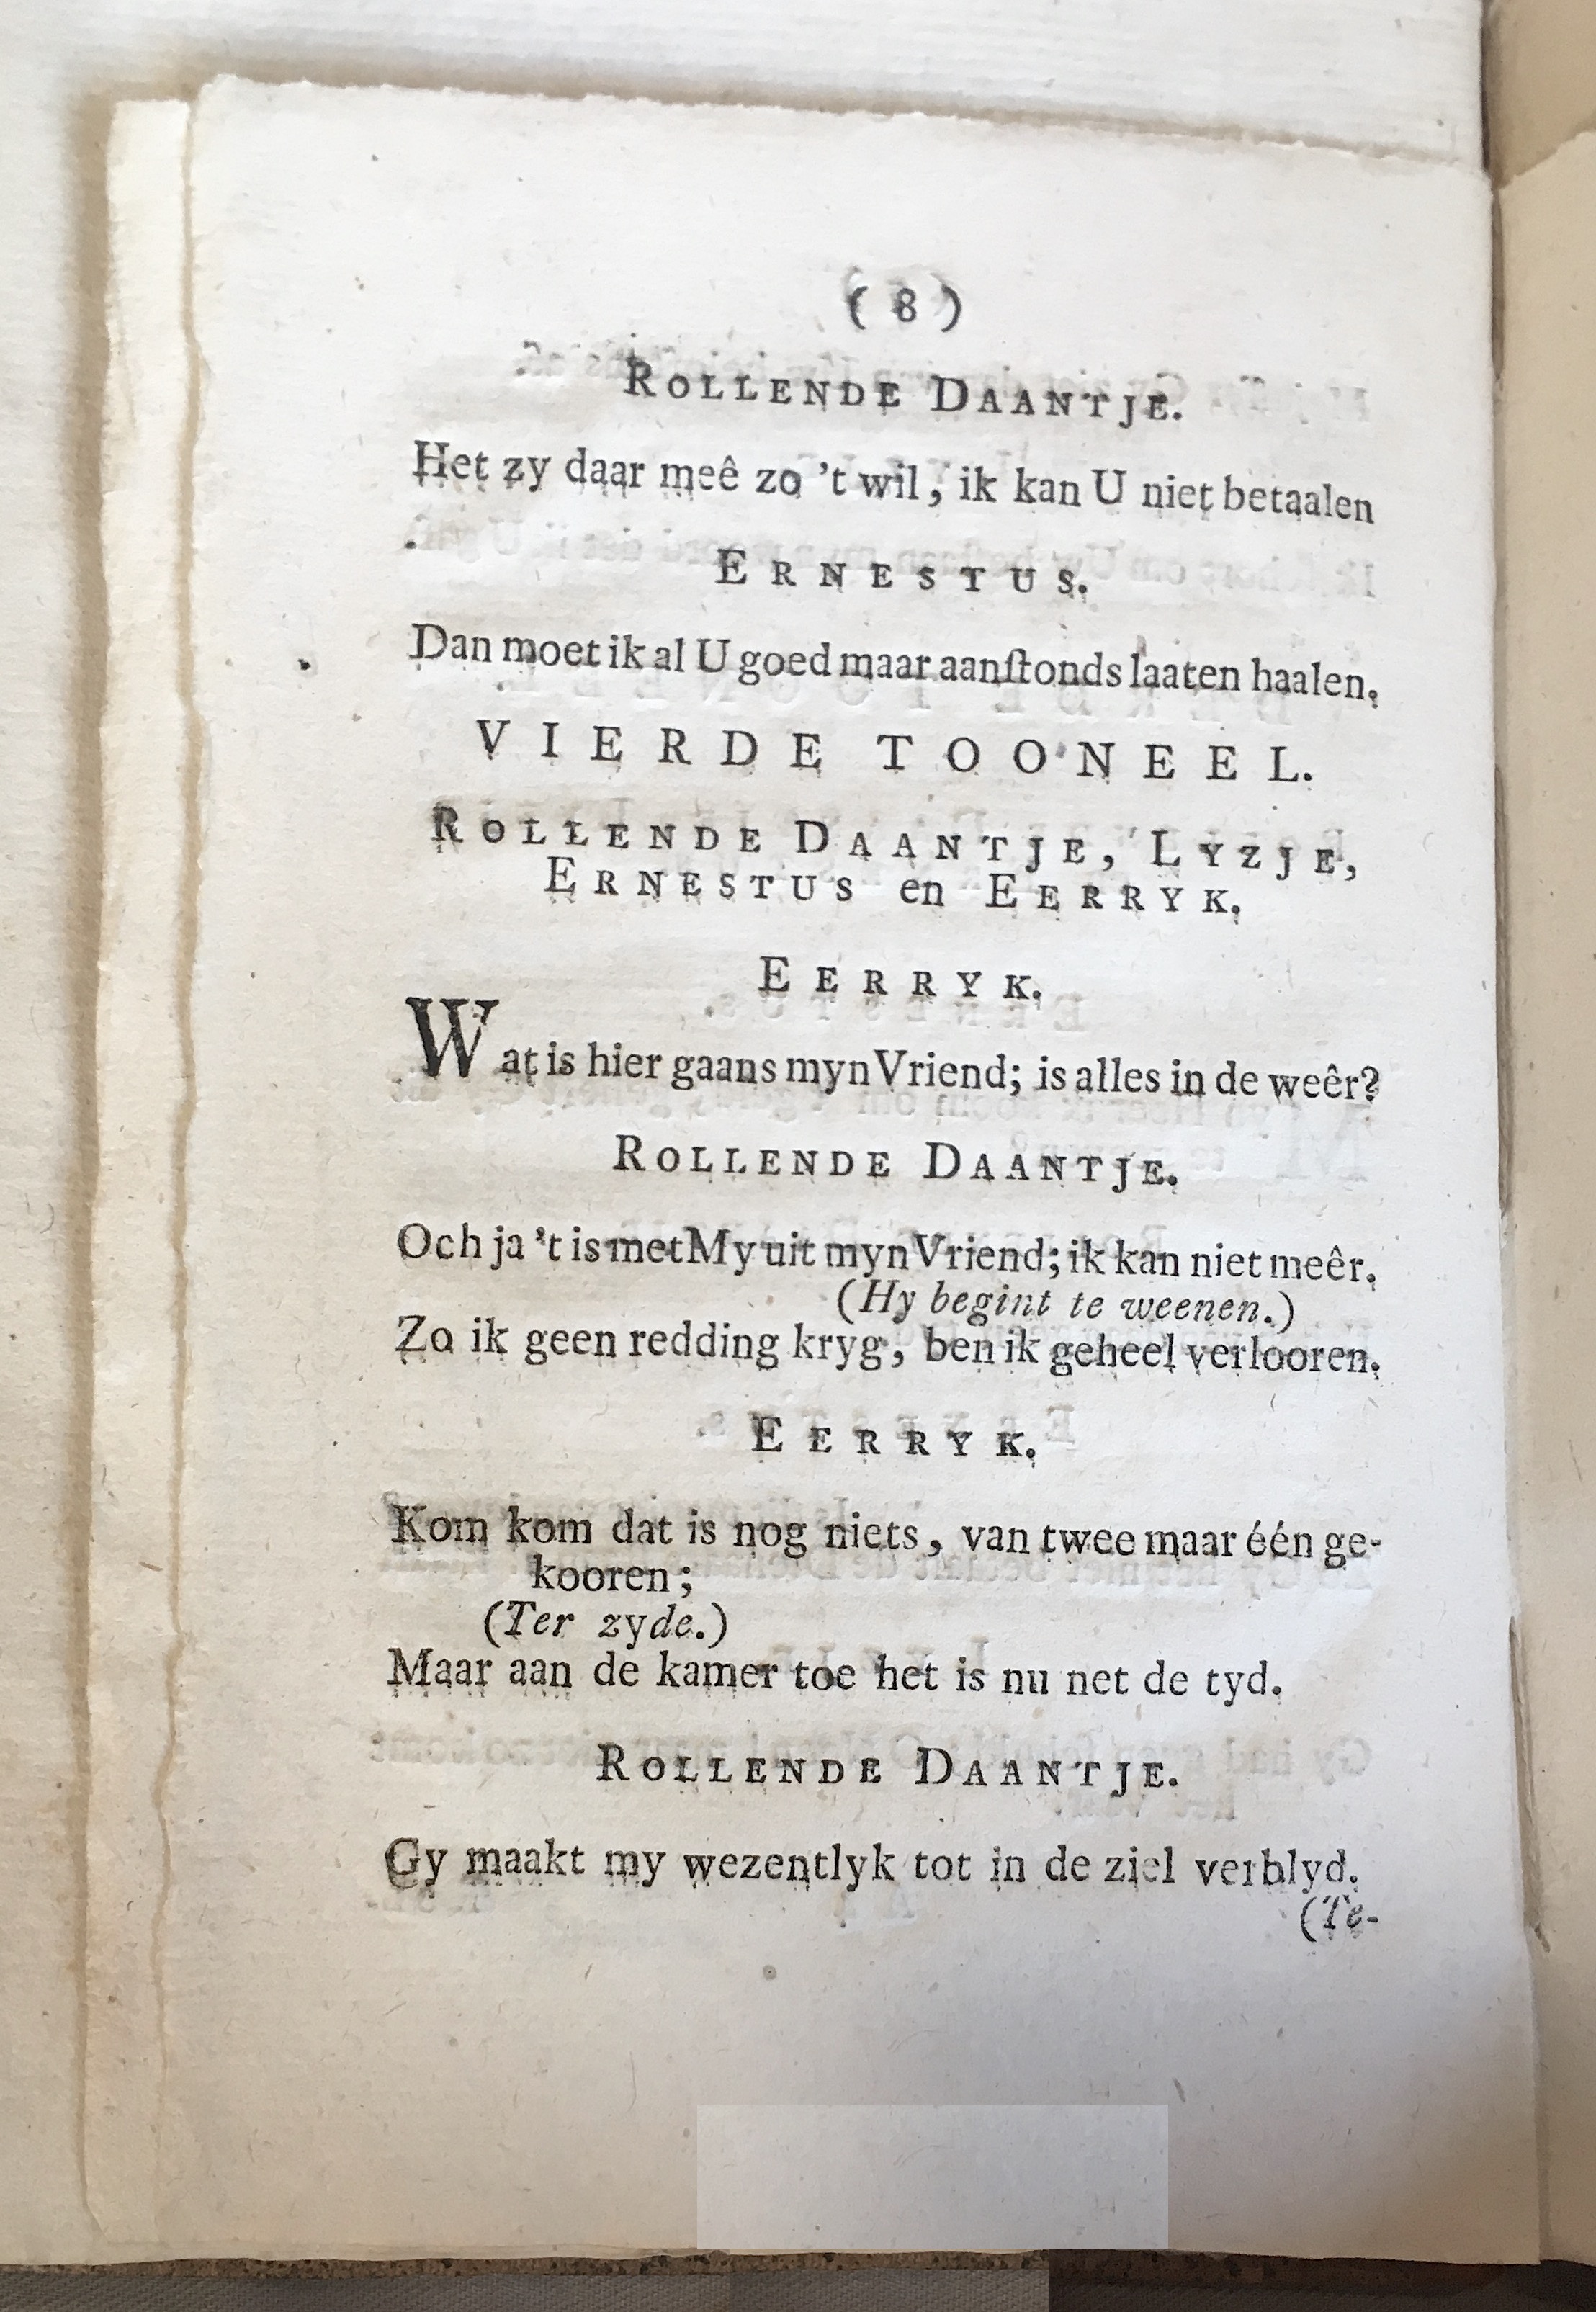 ( 8 )
ROLLENDE DAANTJE.
Het zy daar meê zo 't wil, ik kan U niet betaalen
ERNESTUS.
Dan moet ik al U goed maar aanſtonds laaten haalen.
VIERDE TOONEEL.
ROLLENDE DAANTJE, LYZJE,
ERNESTUS en EERRYK.
EERRYK.
Wat is hier gaans myn Vriend; is alles in de weêr?
ROLLENDE DAANTJE.
Och ja 't is met My uit myn Vriend; ik kan niet meêr.
(Hy begint te weenen.)
Zo ik geen redding kryg, ben ik geheel verlooren.
EERRYK.
Kom kom dat is nog niets, van twee maar één ge-
kooren;
(Ter zyde.)
Maar aan de kamer toe het is nu net de tyd.
ROLLENDE DAANTJE.
Gy maakt my wezentlyk tot in de ziel verblyd.
(Te-